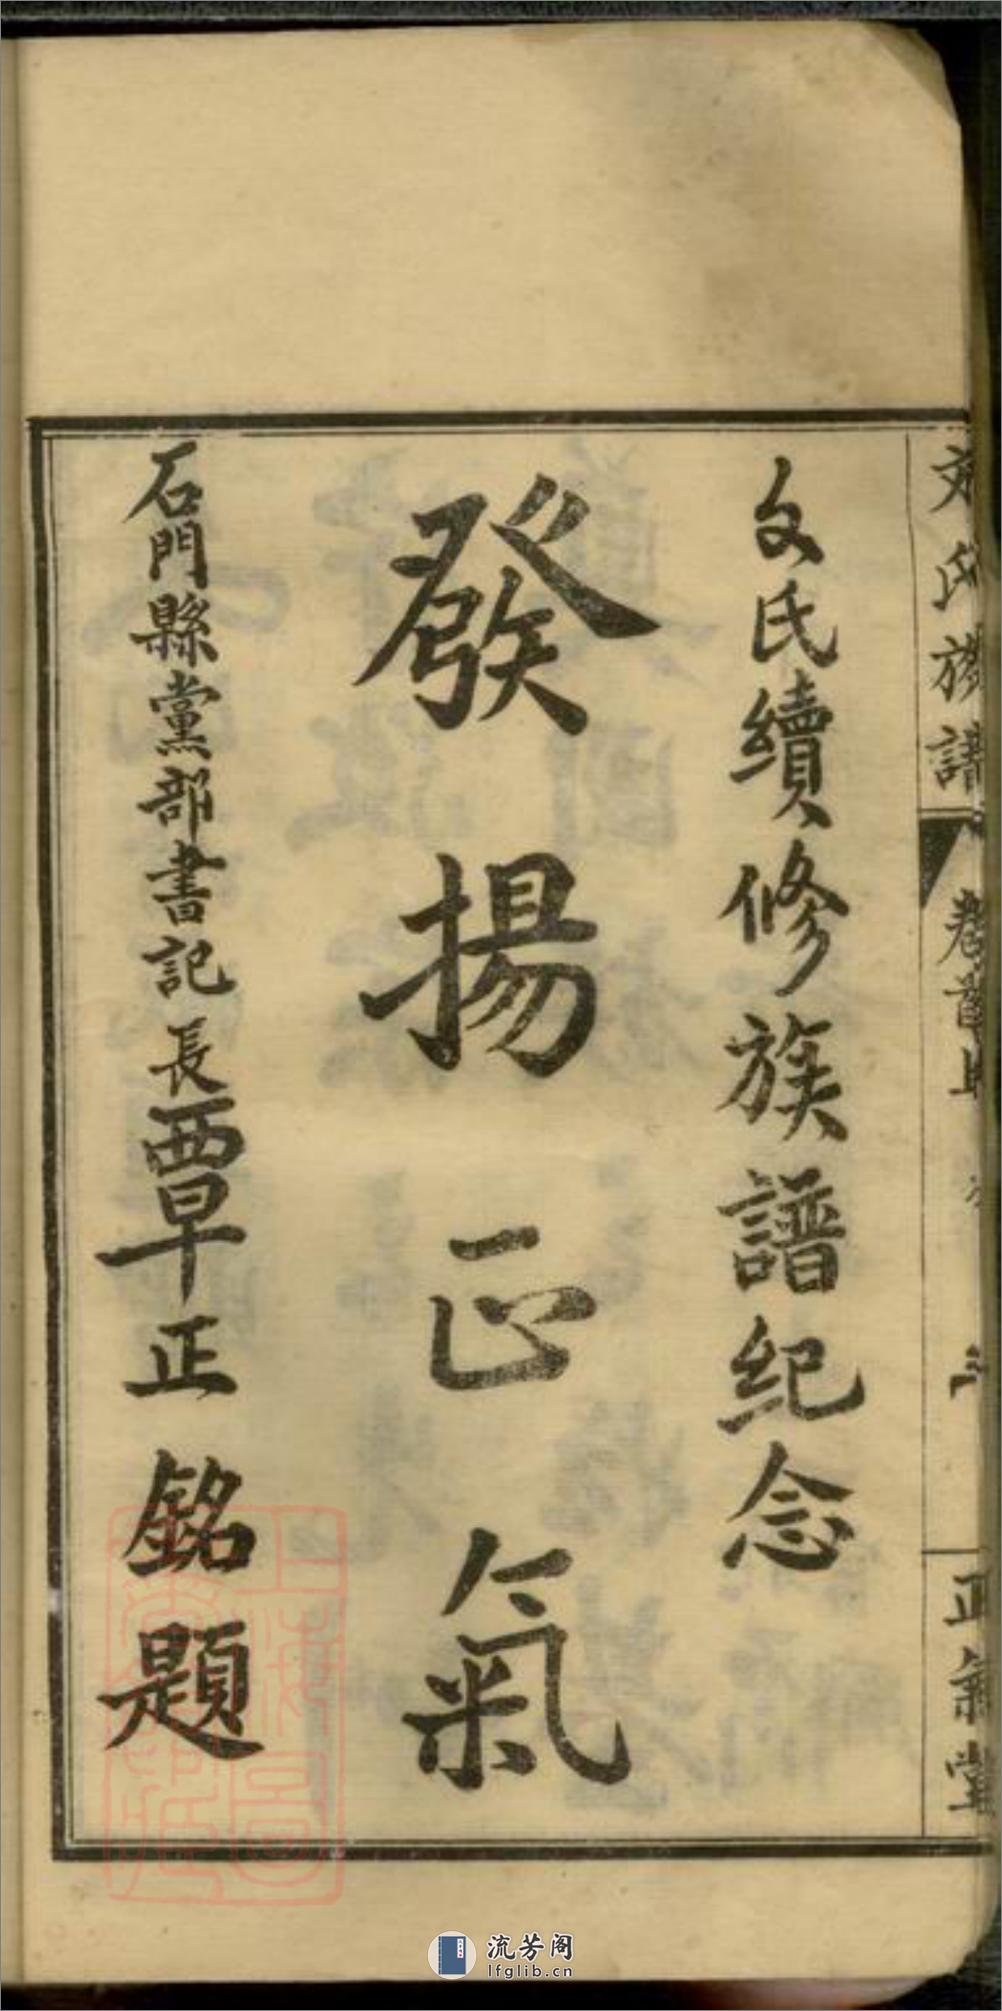 文氏族譜
卷首上
正氣堂
文氏續修族譜紀念
發揚正氣
石門縣黨部書記長覃正銘題
上海圖
流芳阁
lfglib.cn